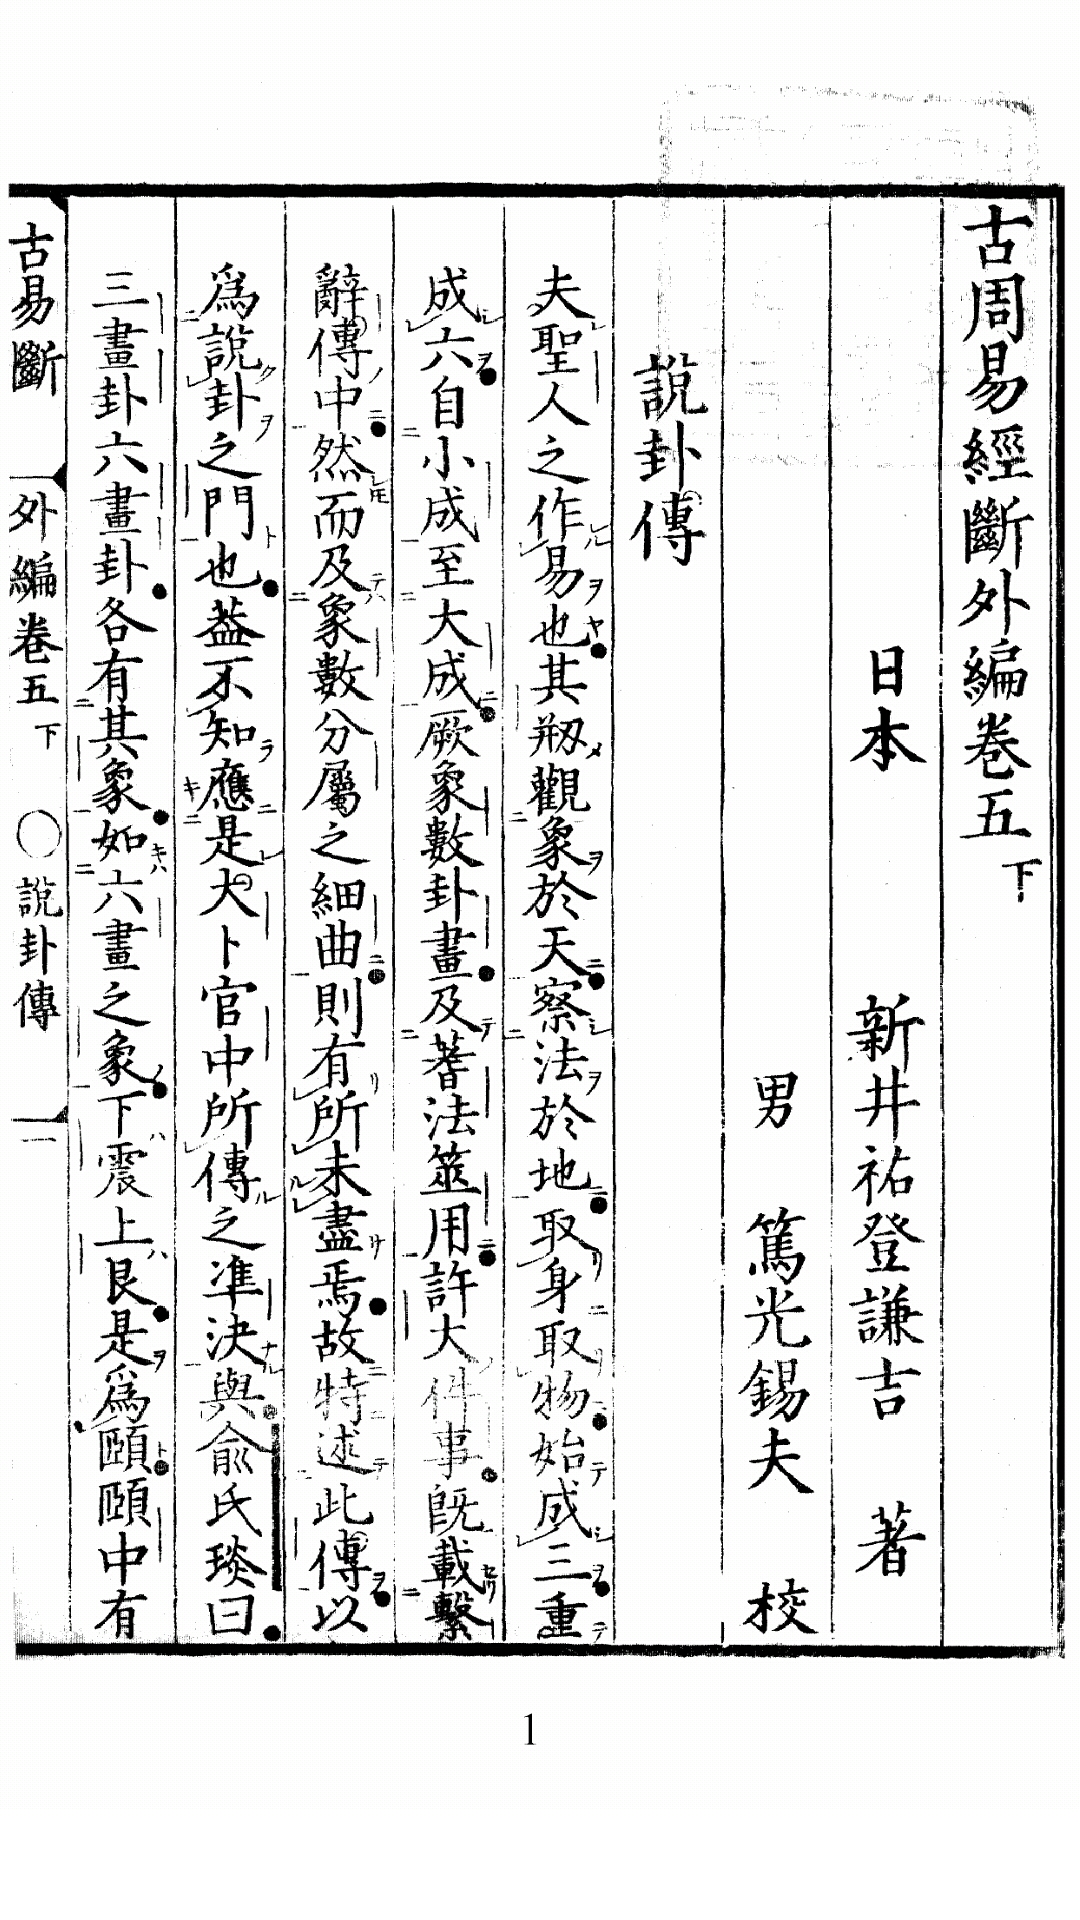 古周易經斷外編卷五下
日本 新井祐登謙吉 著
男 篤光錫夫 校
說卦傳
夫聖人之作易也其刱觀象於天察法於地取身取物始成三重
成六自小成至大成厥象數卦畫及蓍法筮用許大件事既載繫
辭傳中然而及象數分屬之細曲則有所未盡焉故特述此傳以
爲說卦之門也葢不知應是大卜官中所傳之凖決與俞氏琰曰
三畫卦六畫卦各有其象如六畫之象下震上艮是爲頤頤中有
古易斷 外編卷五下 〇說卦傳 一
1